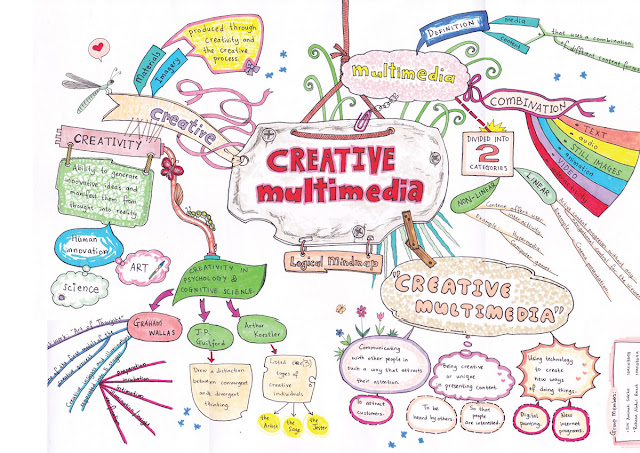 CREATIVE
multimedia
Logical Mindmap
creative
Materials
Imagery
produced through
creativity and
the creative
process.
CREATIVITY
Ability to generate
innovative ideas and
manifest them from
thought into reality
Human
innovation
ART
science
CREATIVITY IN
PSYCHOLOGY &
COGNITIVE SCIENCE.
GRAHAM
WALLAS
"Art of Thought"
J.P.
Guilford
Drew a distinction
between convergent
and divergent
thinking.
Arthur
Koestler
Listed
types of
creative
individuals
the
Artist
the
Sage
the
Jester
multimedia
DEFINITION
media
content
that uses a combination
of different content forms
COMBINATION
TEXT
audio
STILL IMAGES
animation
VIDEO
DIVIDED INTO
2
CATEGORIES
NON-LINEAR
Content offers user
interactivity
Example
Hypermedia
Computer game
LINEAR
Example
Cinema presentation
"CREATIVE
MULTIMEDIA"
Communicating
with other people in
such a way that attracts
their attention.
To attract
customers.
Being creative
or unique
presenting content.
To be
heard by others
So that
people are
interested.
Using technology
to create
new ways
of doing things.
Digital
painting.
New
internet
programs.
Group Members: